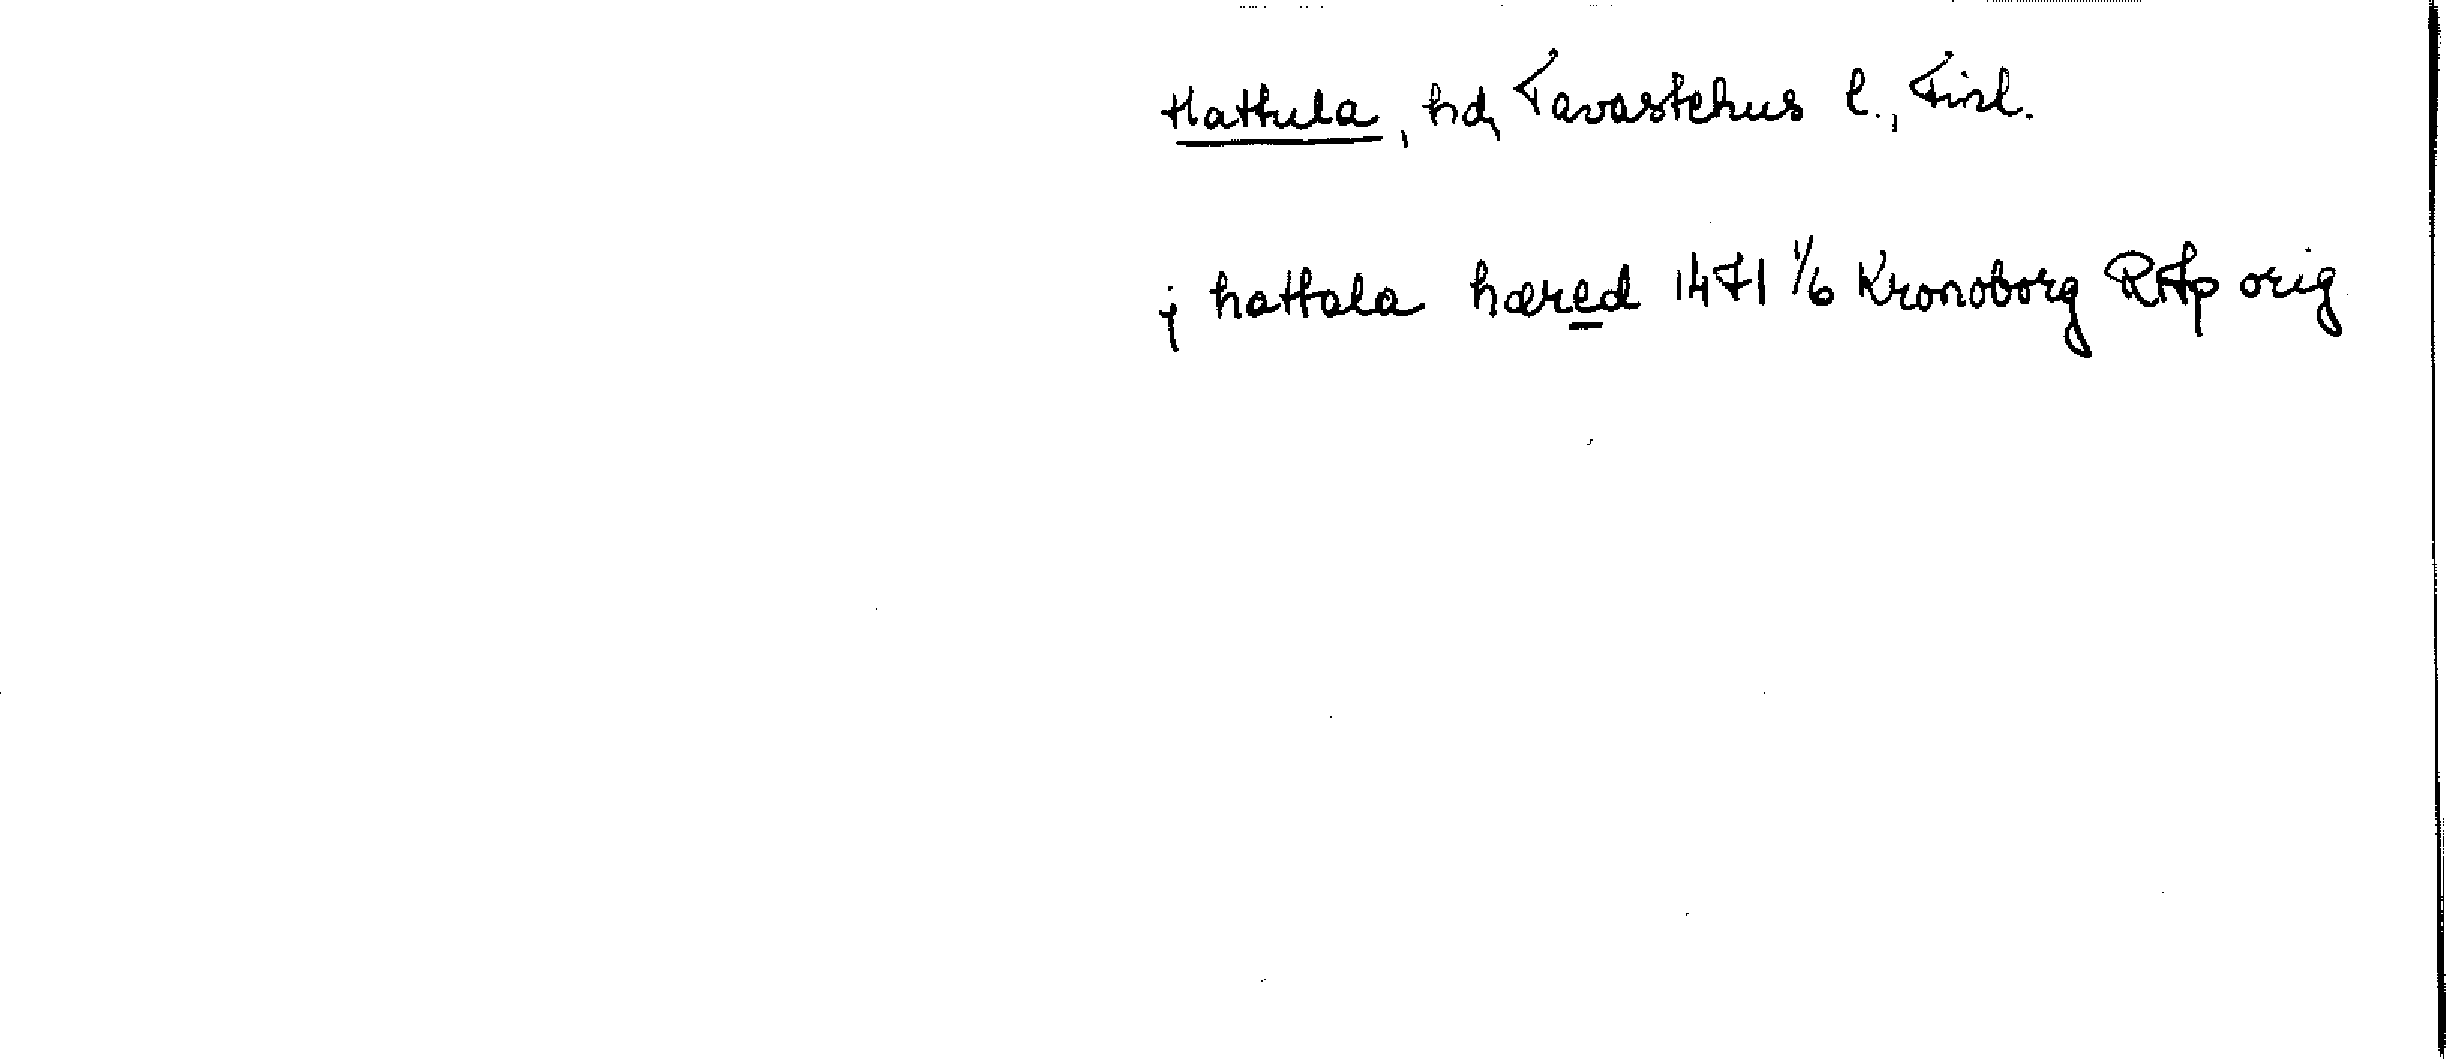 Hattula, hd, Tavastehus l., Finl.
j hattala hæred 1471 1/6 Kronoborg RAp orig